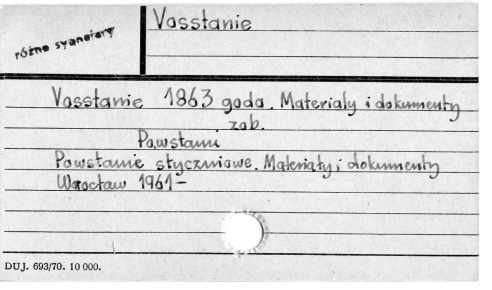 Vosstanie
różne sygnatury
Vosstanie 1863 goda. Materialy i dokumenty
zob.
Powstani
Powstanie styczniowe. Materiały i dokumenty
Wrocław 1961-
DUJ. 693/70. 10 000.